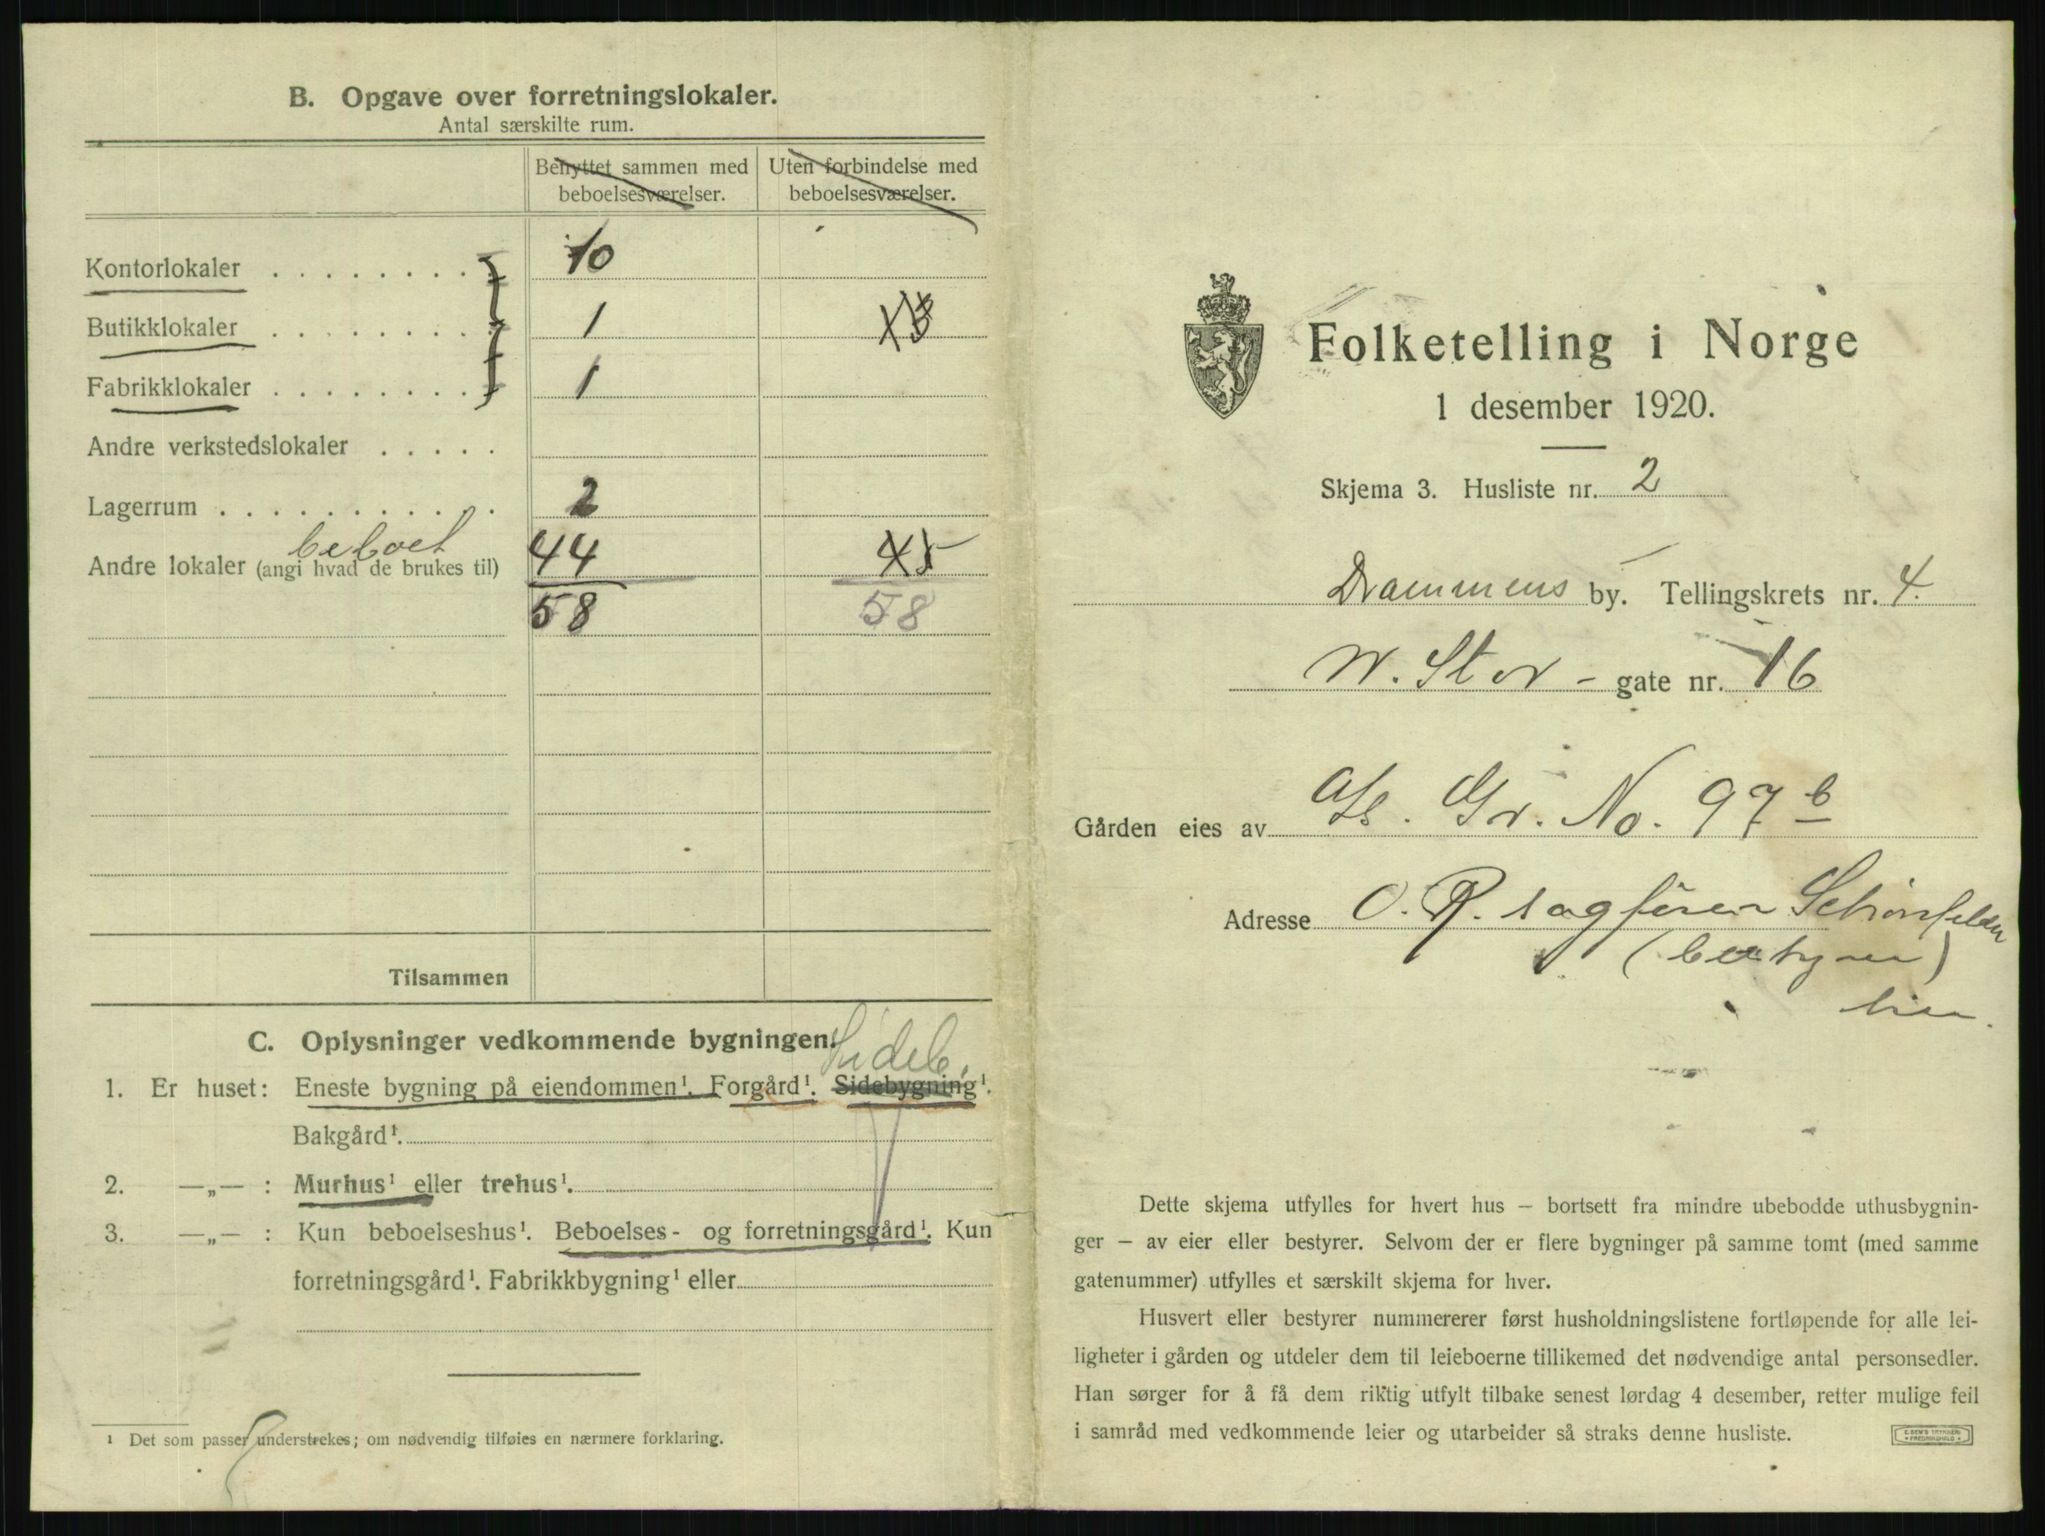 B. Opgave over forretningslokaler.
Antal særskilte rum.
Benyttet sammen med beboelsesværelser.
Uten forbindelse med beboelsesværelser.
Kontorlokaler . . . . . . . . 10
Butikklokaler . . . . . . . . 1
Fabrikklokaler . . . . . . . . 1
Andre verkstedslokaler . . . . .
Lagerrum . . . . . . . . . . 2
beboet
Andre lokaler (angi hvad de brukes til) 44
58 58
Tilsammen
C. Oplysninger vedkommende bygningen.
Sideb.
1. Er huset: Eneste bygning på eiendommen¹. Forgård¹. Sidebygning¹.
Bakgård¹.
2. —„— : Murhus¹ eller trehus¹.
3. —„— : Kun beboelseshus¹. Beboelses- og forretningsgård¹. Kun
forretningsgård¹. Fabrikkbygning¹ eller
¹ Det som passer understrekes; om nødvendig tilføies en nærmere forklaring.
Folketelling i Norge
1 desember 1920.
Skjema 3. Husliste nr. 2
Drammens by. Tellingskrets nr. 4.
N. Stor - gate nr. 16
Gården eies av A/s. Gr. No. 97 b
Adresse O. R. sagfører Schønfelder
(bestyrer)
her.
Dette skjema utfylles for hvert hus – bortsett fra mindre ubebodde uthusbygnin-
ger – av eier eller bestyrer. Selvom der er flere bygninger på samme tomt (med samme
gatenummer) utfylles et særskilt skjema for hver.
Husvert eller bestyrer nummererer først husholdningslistene fortløpende for alle lei-
ligheter i gården og utdeler dem til leieboerne tillikemed det nødvendige antal personsedler.
Han sørger for å få dem riktig utfylt tilbake senest lørdag 4 desember, retter mulige feil
i samråd med vedkommende leier og utarbeider så straks denne husliste.